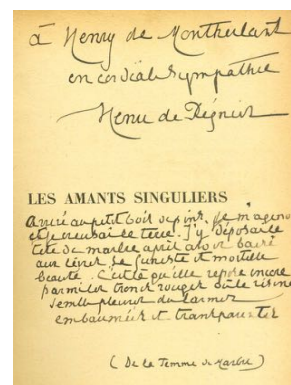 à Henry de Montherlant
en cordiale sympathie
Henri de Régnier
LES AMANTS SINGULIERS
Arrivé au petit bois de pins, je m'agenouillai
et je creusai la terre. J'y déposai la
tête de marbre après avoir baisé
aux lèvres sa funeste et mortelle
beauté. C'est là qu'elle repose encore
parmi les troncs rouges où la résine
semble pleurer des larmes
embaumées et transparentes
(De la Femme de Marbre)